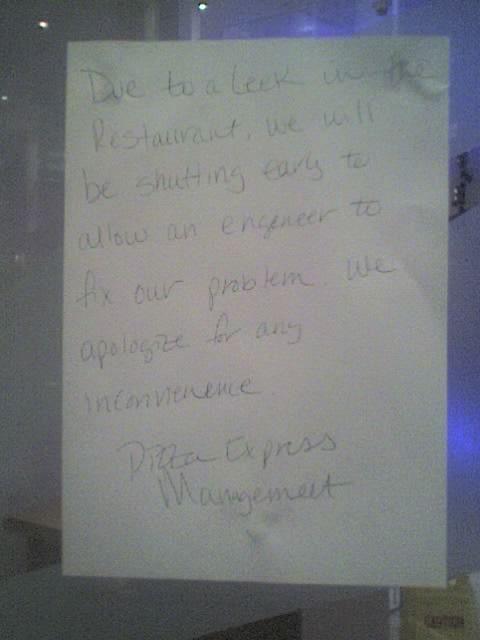 Due to a Leek in the
Restaurant, we will
be shutting early to
allow an engeneer to
fix our problem. We
apologize for any
inconvienence.
Pizza Express
Management
CAUTION